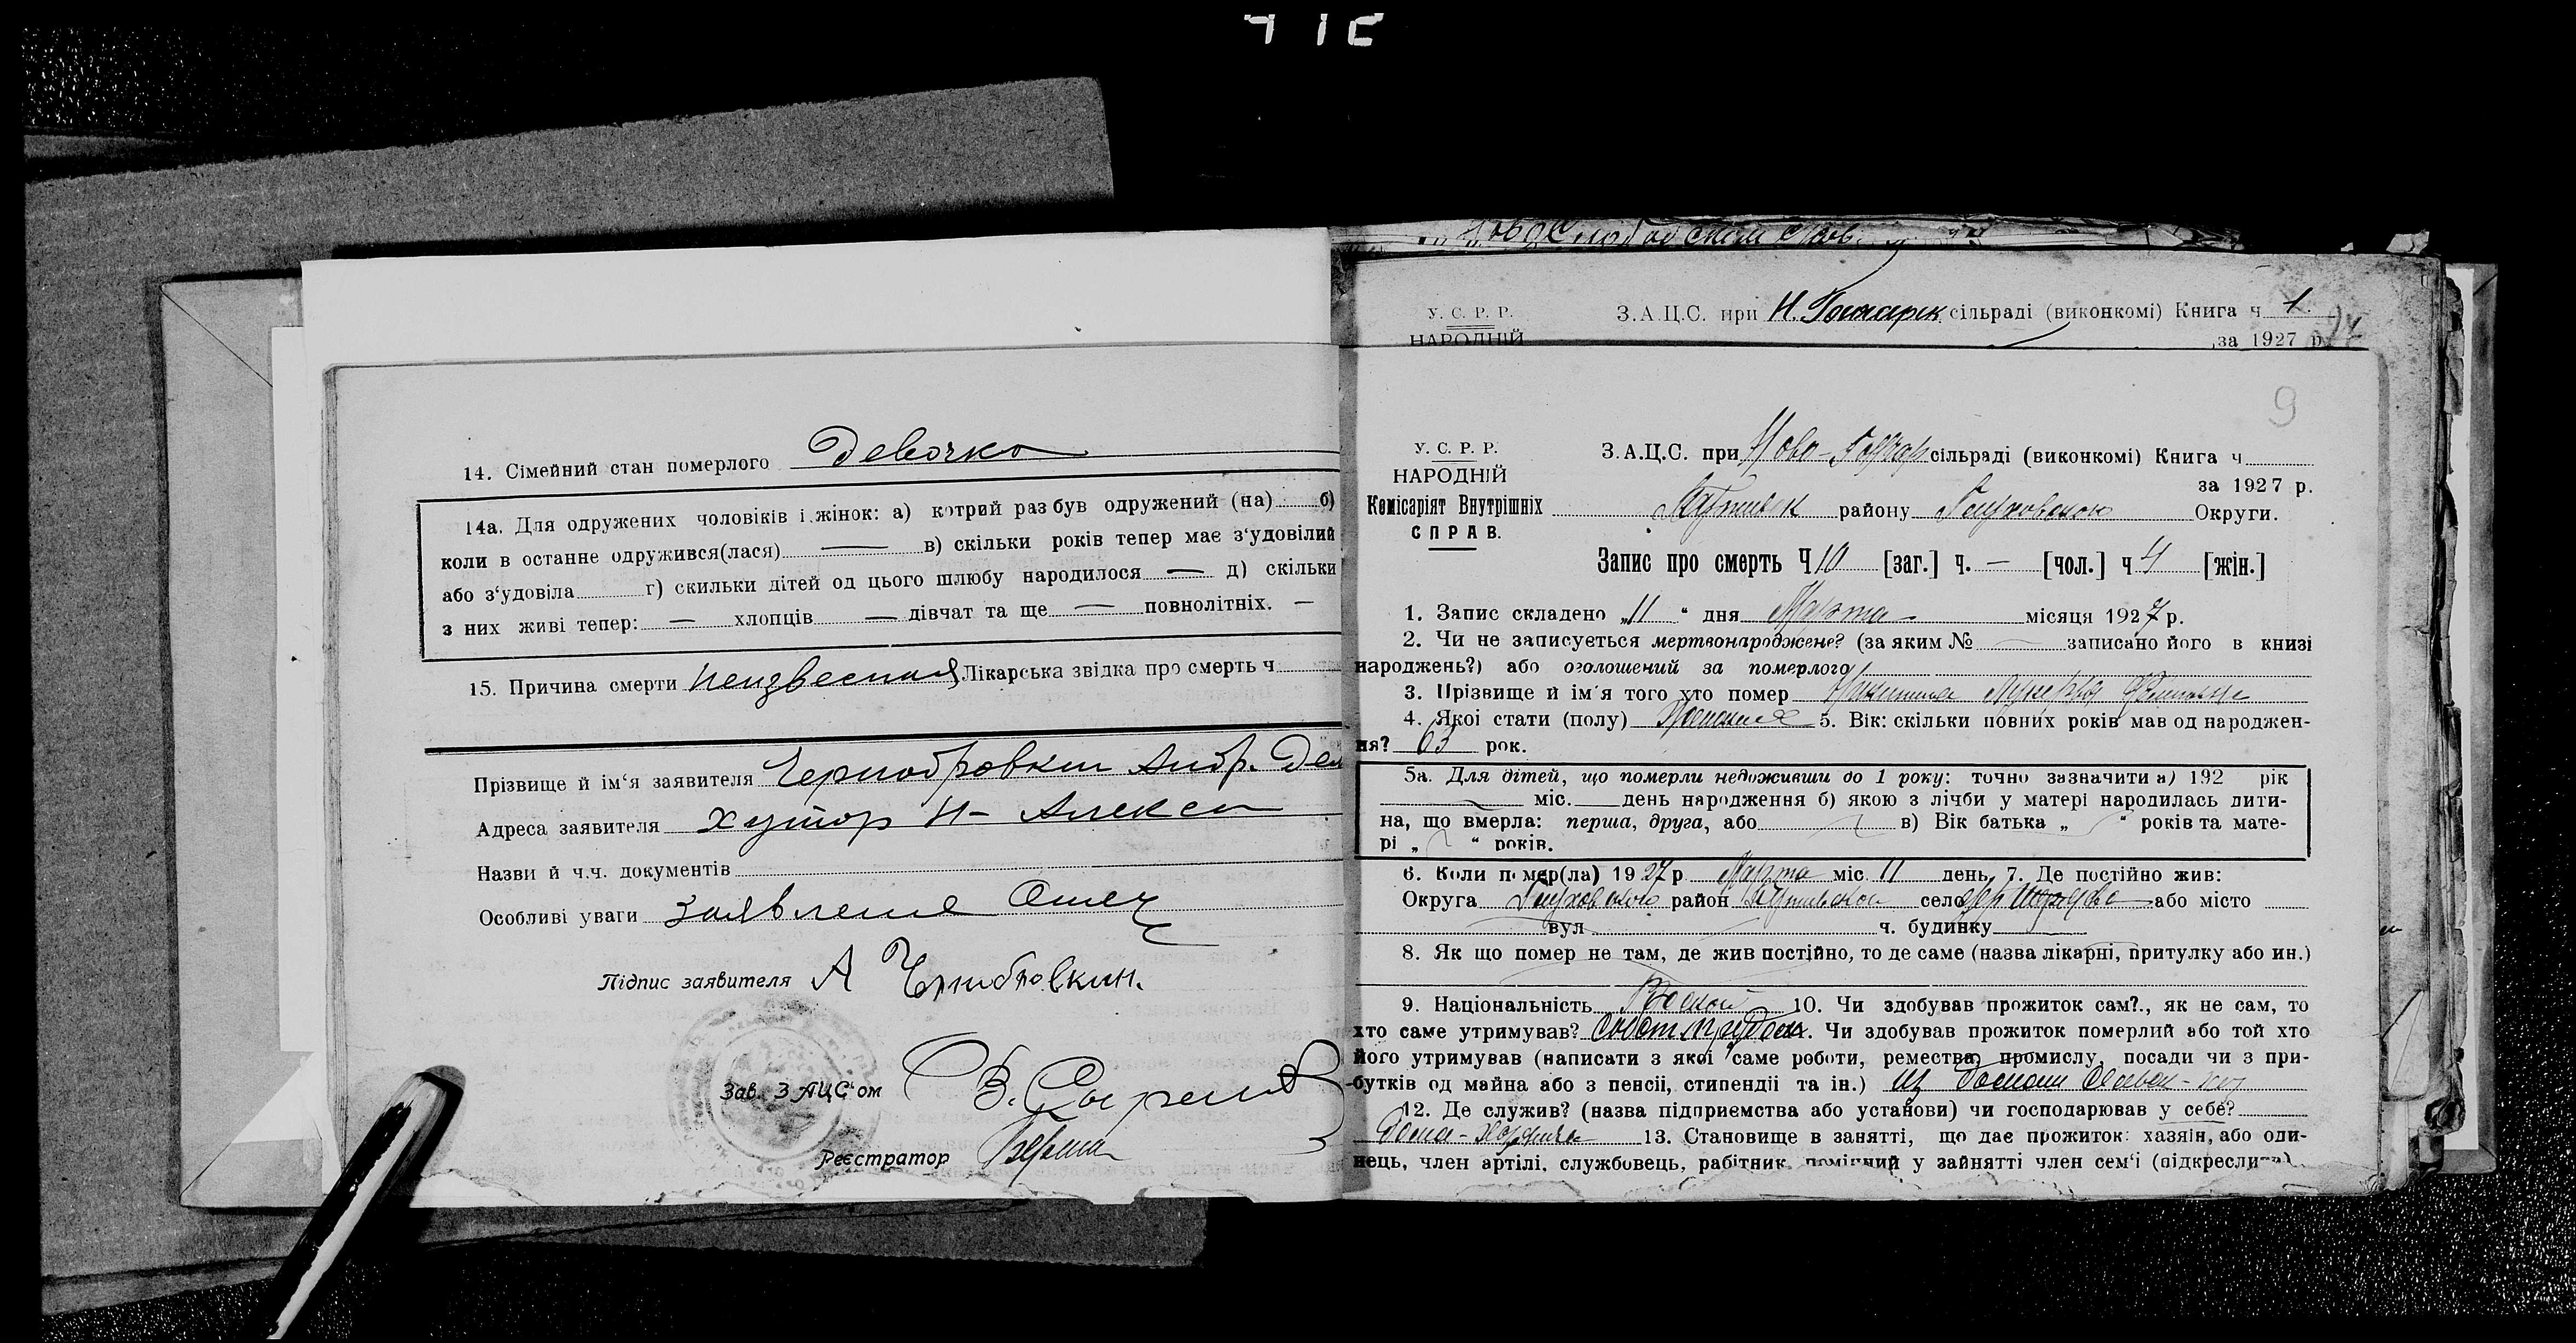 14. Сімейний стан померлого Девочка
14а. Для одружених чоловіків і жінок: а) котрий раз був одружений (на) б)
коли в останне одружився(лася) — в) скільки років тепер має з'удовілий
або з'удовіла г) скильки дітей од цього шлюбу народилося — д) скільки
з них живі тепер: — хлопців — дівчат та ще — повнолітніх. —
15. Причина смерти неизвестная Лікарська звідка про смерть ч
Прізвище й ім'я заявителя Чернобровкин Андр.
Адреса заявителя хутор Н- Алекса
Назви й ч.ч. документів
Особливі уваги заявление Отец
Підпис заявителя А Чернобровкин.
Зав. ЗАЦС'ом В.
Реєстратор
У. С. Р. Р. З.А.Ц.С. при Н. Гончарск сільраді (виконкомі) Книга ч 1.
НАРОДНІЙ за 1927 р.
9
У. С. Р. Р. З.А.Ц.С. при Ново-Гончар сільраді (виконкомі) Книга ч
НАРОДНІЙ за 1927 р.
Комісаріят Внутрішніх Путивск району Глуховскою Округи.
СПРАВ.
Запис про смерть Ч 10 [заг.] ч. — [чол.] ч 4 [жін.]
1. Запис складено „11 “ дня Марта місяця 1927 р.
2. Чи не записується мертвонароджене? (за яким № — записано його в книзі
народжень?) або оголошений за померлого
3. Прізвище й ім'я того хто помер Никитина
4. Якої стати (полу) Женская 5. Вік: скільки повних років мав од народжен-
ня? 63 рок.
5а. Для дітей, що померли недоживши до 1 року: точно зазначити а) 192 рік
міс. день народження б) якою з лічби у матері народилась дити-
на, що вмерла: перша, друга, або в) Вік батька „ “ років та мате-
рі „ “ років.
6. Коли помер(ла) 1927 р Марта міс 11 день, 7. Де постійно жив:
Округа Глуховскою район Путивльской село або місто
вул ч. будинку
8. Як що помер не там, де жив постійно, то де саме (назва лікарні, притулку або ин.)
9. Національність 10. Чи здобував прожиток сам?., як не сам, то
хто саме утримував? Чи здобував прожиток померлий або той хто
його утримував (написати з якої саме роботи, ремества, промислу, посади чи з при-
бутків од майна або з пенсії, стипендії та ін.)
12. Де служив? (назва підприємства або установи) чи господарював у себе?
13. Становище в занятті, що дає прожиток: хазяїн, або оди-
нець, член артілі, службовець, рабітник, помічний у зайнятті член сем'ї (підкреслити)